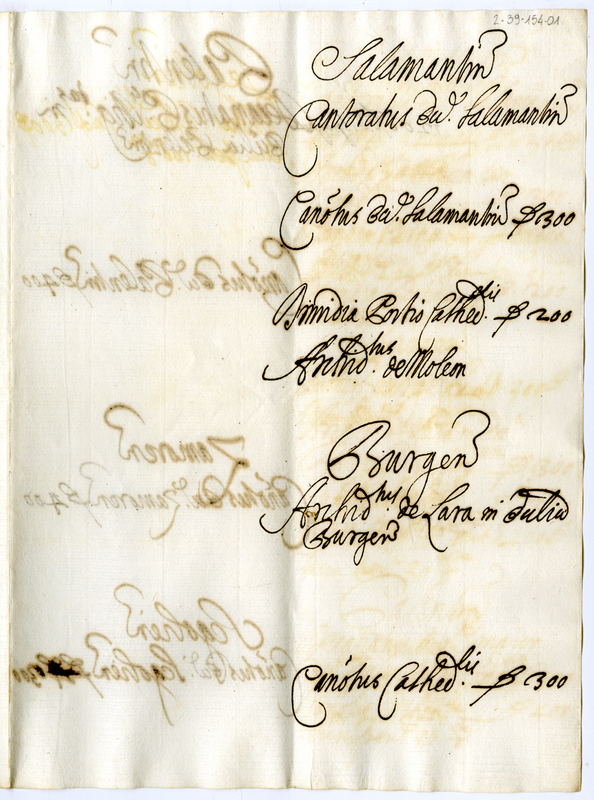 2-39-154-01
Salamantin
Cantoratus Ecc. Salamantin
Canōtus Ecc. Salamantin 300
Dimidia Portio Cathed.lis 200
Archid.tus de Moleon
Burgen
Archid.tus de Lara in Ecclia
Burgen
Canōtus Cathed.lis 300